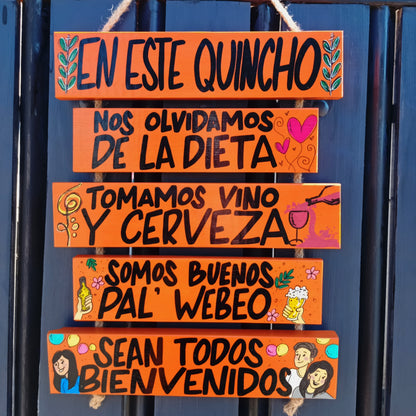 EN ESTE QUINCHO
NOS OLVIDAMOS
DE LA DIETA
TOMAMOS VINO
Y CERVEZA
SOMOS BUENOS
PAL' WEBEO
SEAN TODOS
BIENVENIDOS